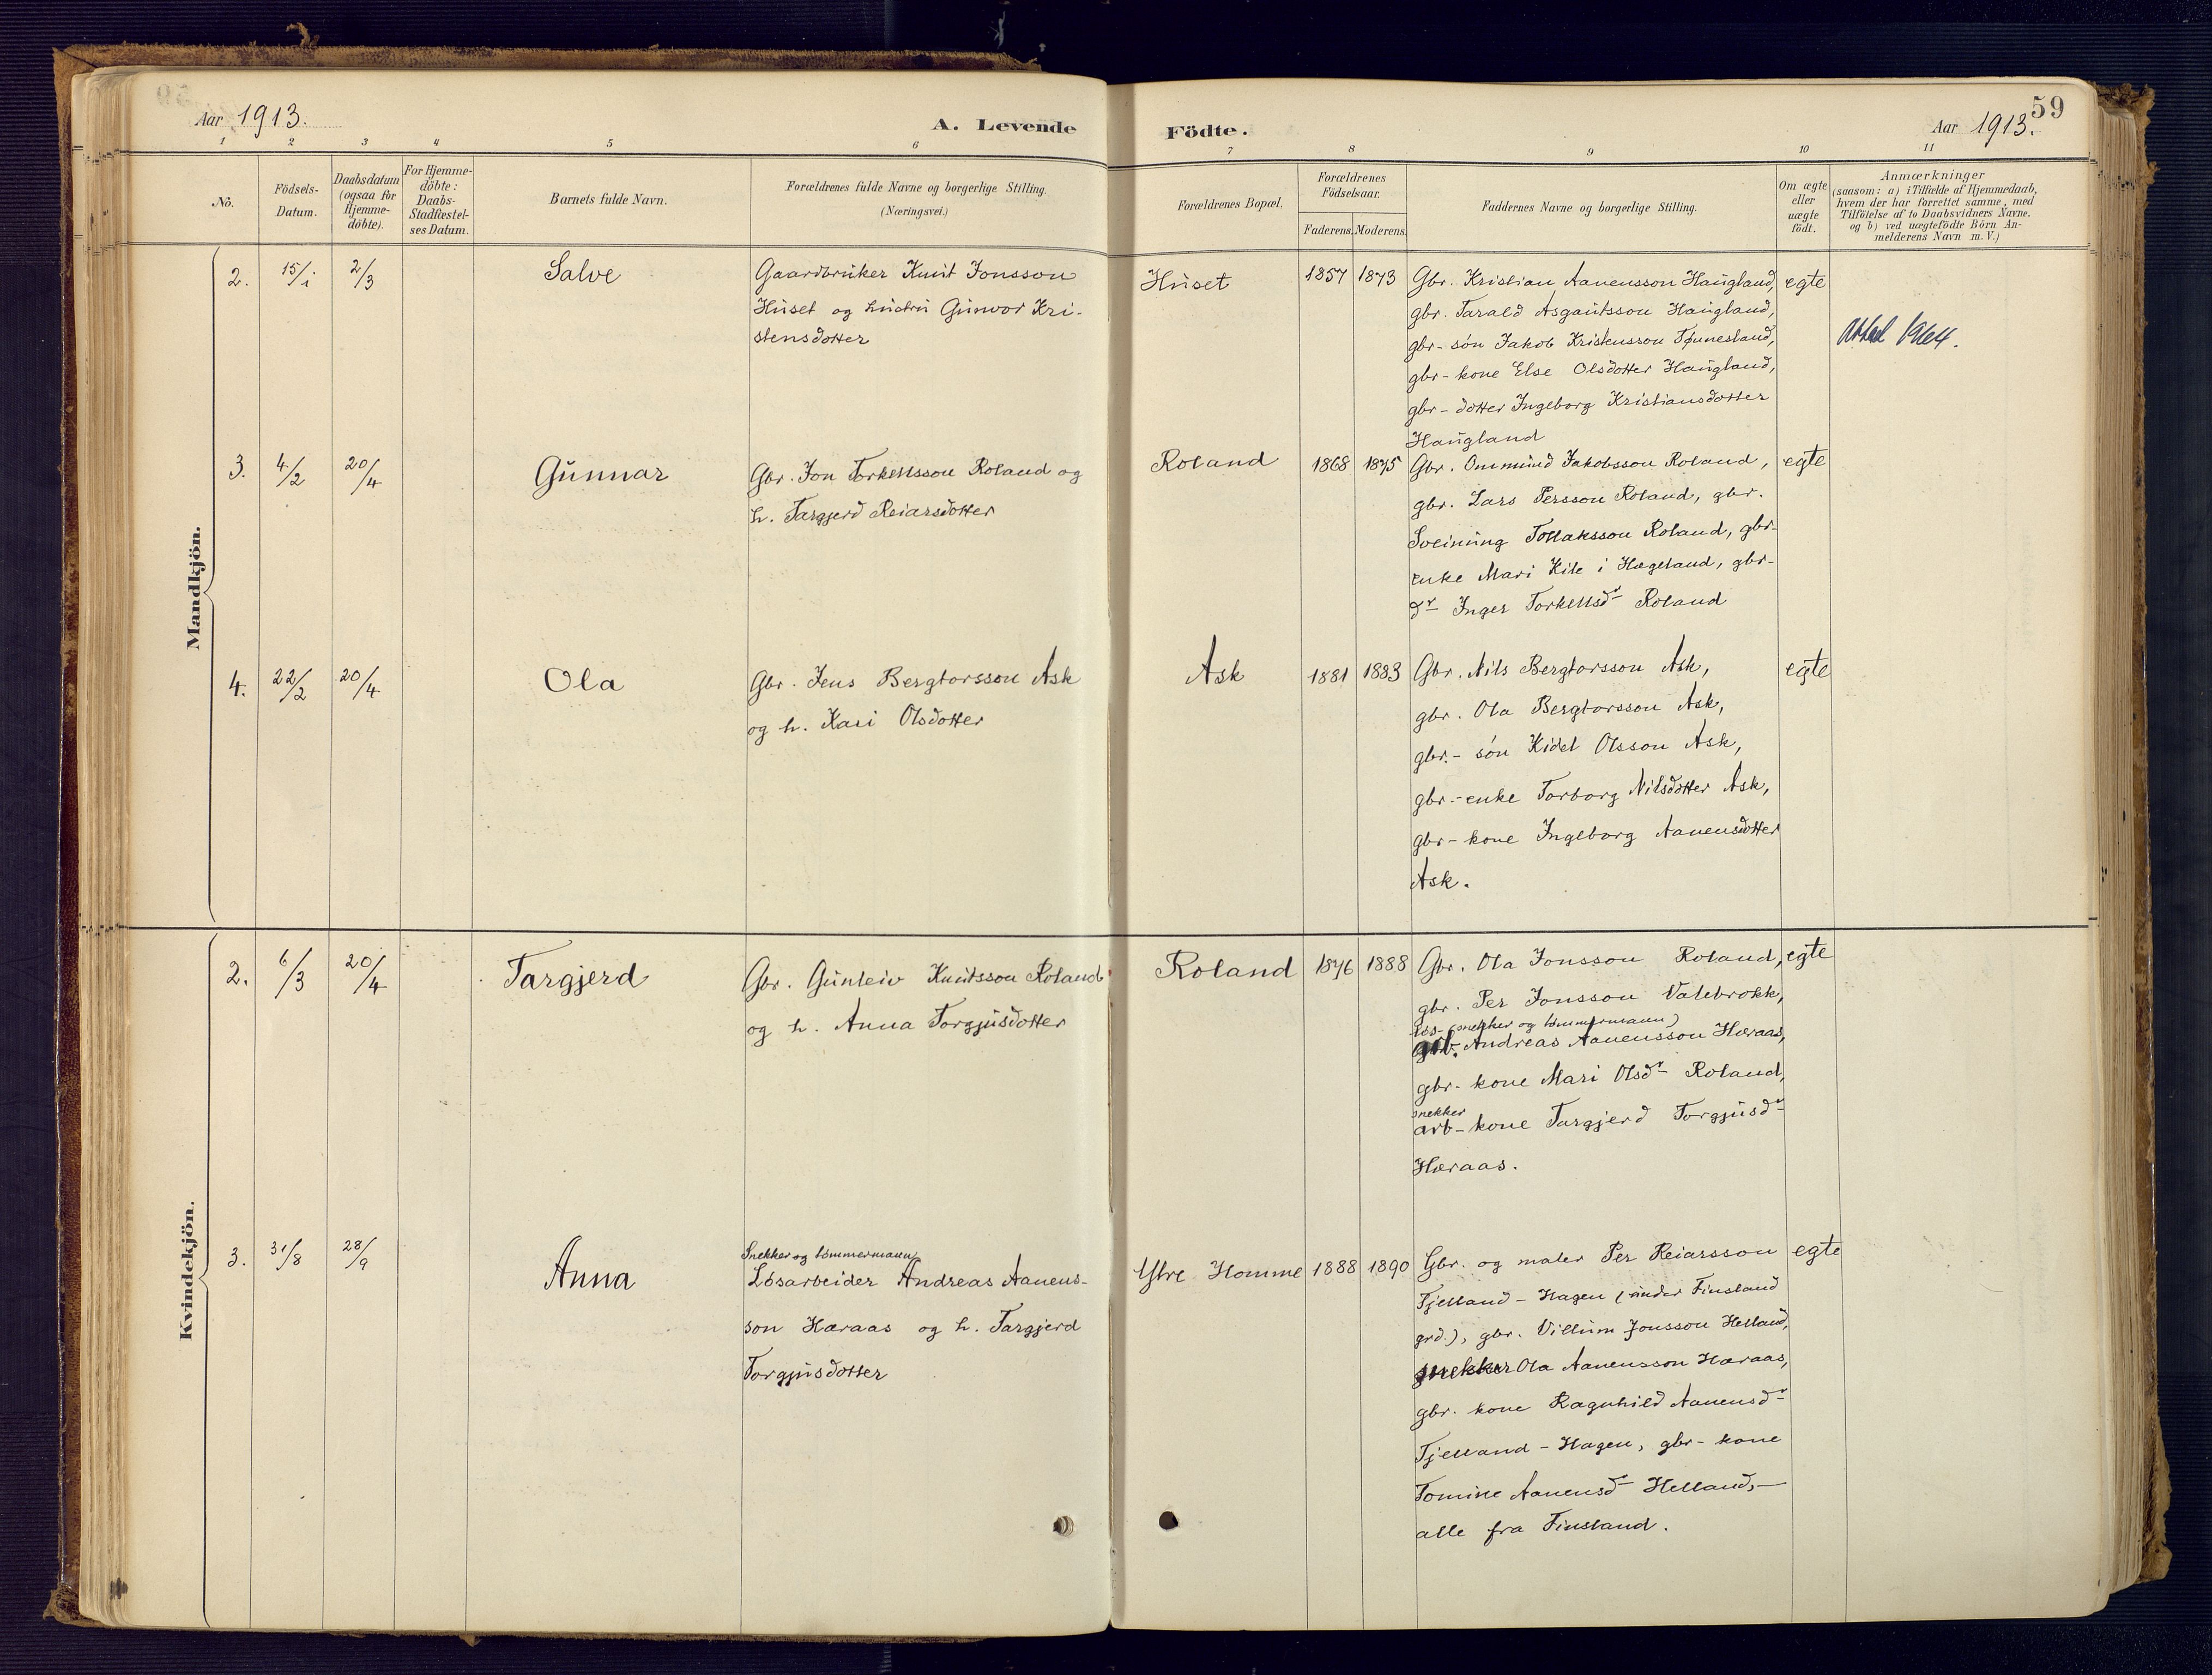 59
Aar 1913.
A. Levende
Födte.
Aar 1913.
1 2 3 4 5 6 7 8 9 10 11
No.
Födsels-
Datum.
Daabsdatum
(ogsaa for
Hjemme-
döbte).
For Hjemme-
döbte:
Daabs-
Stadfæstel-
ses Datum.
Barnets fulde Navn.
Forældrenes fulde Navne og borgerlige Stilling.
(Næringsvei.)
Forældrenes Bopæl.
Forældrenes
Födselsaar.
Faderens. Moderens.
Faddernes Navne og borgerlige Stilling.
Om ægte
eller
uægte
födt.
Anmærkninger
(saasom: a) i Tilfælde af Hjemmedaab,
hvem der har forrettet samme, med
Tilföielse af to Daabsvidners Navne,
og b) ved uægtefödte Börn An-
melderens Navn m. V.)
Mandkjön.
2. 15/1 2/3 Salve
Gaardbruker Knut Jonsson
Huset og hustru Gunvor Kri-
stensdotter
Huset 1857 1873
Gbr. Kristian Aanensson Haugland,
gbr. Tarald Asgautsson Haugland,
gbr-søn Jakob Kristensson Tønnesland,
gbr-kone Else Olsdotter Haugland,
gbr-dotter Ingeborg Kristiansdotter
Haugland
egte
Attest 1964.
3. 4/2 20/4 Gunnar
Gbr. Jon Torkellsson Roland og
h. Targjerd Reiarsdotter
Roland 1868 1875
Gbr. Ommund Jakobsson Roland,
gbr. Lars Persson Roland, gbr.
Sveinung Tollaksson Roland, gbr-
enke Mari Kile i Hægeland, gbr-
dr Inger Torkellsdr Roland
egte
4. 22/2 20/4 Ola
Gbr. Jens Bergtorsson Ask
og h. Kari Olsdotter
Ask 1881 1883
Gbr. Nils Bergtorsson Ask,
gbr. Ola Bergtorsson Ask,
gbr.-søn Kidel Olsson Ask,
gbr.-enke Torborg Nilsdotter Ask,
gbr-kone Ingeborg Aanensdotter
Ask.
egte
Kvindekjön.
2. 6/3 20/4 Targjerd
Gbr. Gunleiv Knutsson Roland
og h. Anna Torgjusdotter
Roland 1876 1888
Gbr. Ola Jonsson Roland,
gbr. Per Jonsson Valebrokk,
løs- (snekker og tømmermann)
arb. Andreas Aanensson Hæraas,
gbr-kone Mari Olsdr Roland,
snekker
arb-kone Targjerd Torgjusdr
Hæraas.
egte
3. 31/8 28/9 Anna
Snekker og tømmermann
Løsarbeider Andreas Aanens-
son Hæraas og h. Targjerd
Torgjusdotter
Ytre Homme 1888 1890
Gbr. og maler Per Reiarsson
Tjelland-Hagen (under Finsland
grd.), gbr. Villum Jonsson Helland,
snekker Ola Aanensson Hæraas,
gbr. kone Ragnhild Aanensdr
Tjelland-Hagen, gbr-kone
Tomine Aanensdr Helland,—
alle fra Finsland.
egte